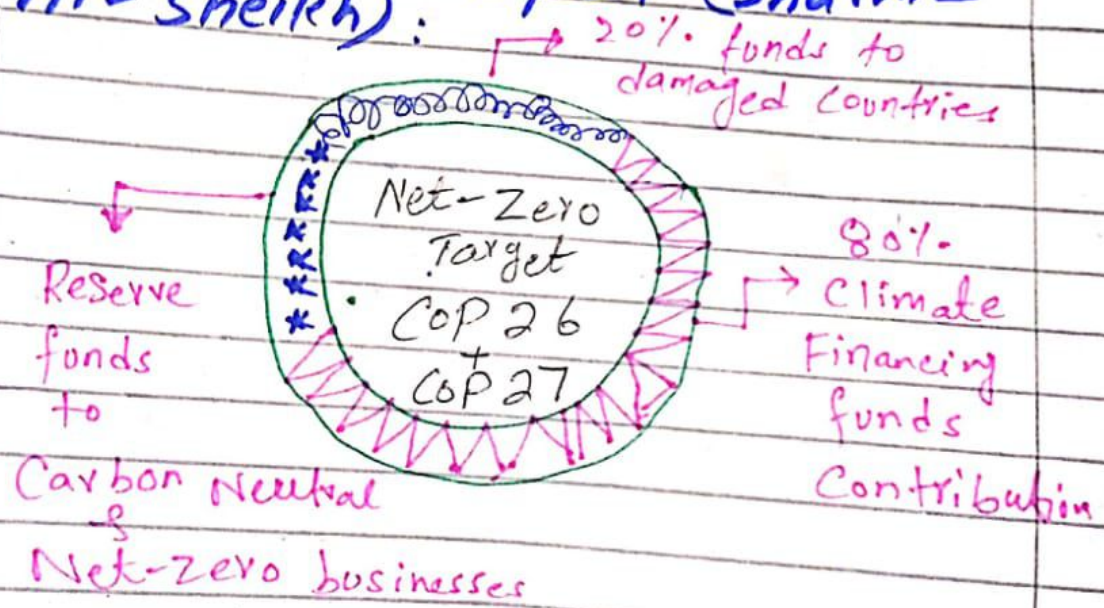 Sheikh):
20%. funds to
damaged Countries
Net-Zero
Target
COP 26
+
COP 27
80%.
Climate
Financing
funds
Contribution
Reserve
funds
to
Carbon Neutral
&
Net-zero businesses